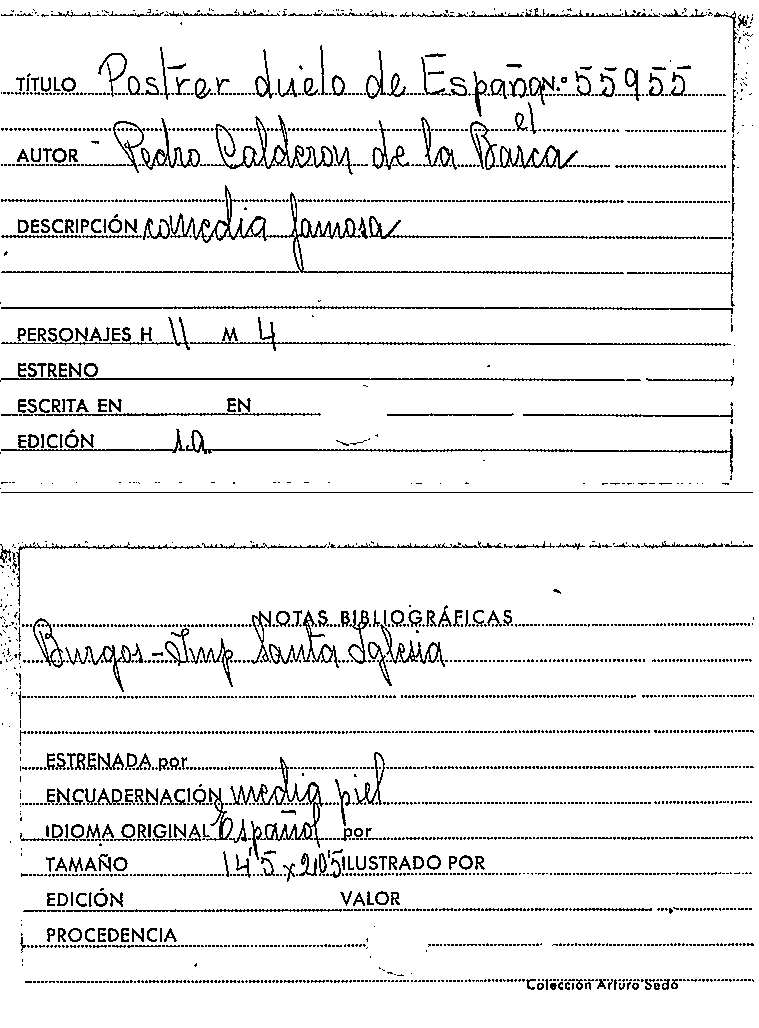 TÍTULO Postrer duelo de España, el N.º 55955
AUTOR - Pedro Calderon de la Barca
DESCRIPCIÓN comedia famosa
PERSONAJES H 11 M 4
ESTRENO
ESCRITA EN EN
EDICIÓN s.a.
NOTAS BIBLIOGRÁFICAS
Burgos - Imp Santa Iglesia
ESTRENADA por
ENCUADERNACIÓN media piel
IDIOMA ORIGINAL Español por
TAMAÑO 14'5 x 20'5 ILUSTRADO POR
EDICIÓN VALOR
PROCEDENCIA
Colección Arturo Sedó